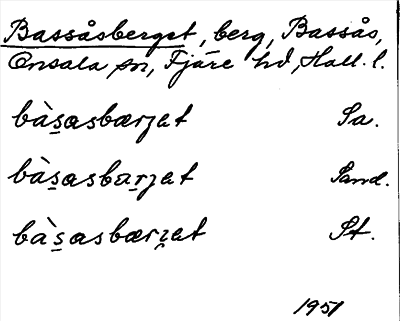 Bassåsberget, berg, Bassås,
Onsala sn, Fjäre hd, Hall. l.
bàs̠asbærjet Sa.
bàs̠asbær̠jet Sand.
bàs̠asbærjet St.
1951